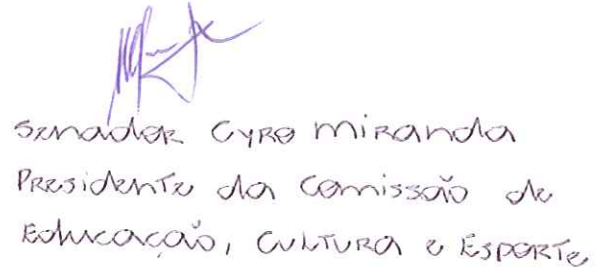 Senador Cyro Miranda
Presidente da Comissão de
Educação, Cultura e Esporte